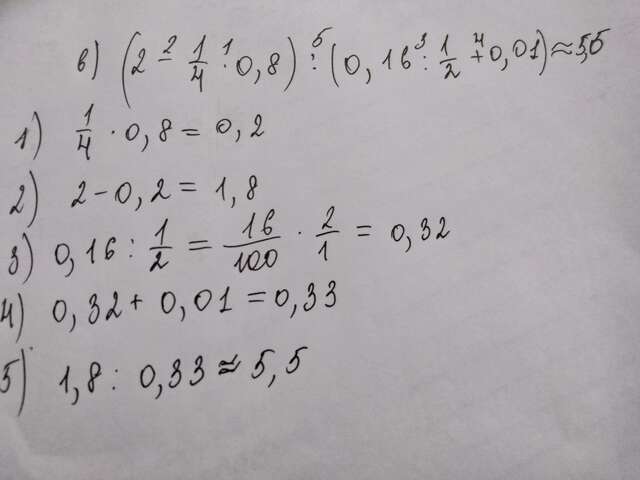 в) (2 - 1/4 · 0,8) : (0,16 : 1/2 + 0,01) ≈ 5,5
1) 1/4 · 0,8 = 0,2
2) 2 - 0,2 = 1,8
3) 0,16 : 1/2 = 16/100 · 2/1 = 0,32
4) 0,32 + 0,01 = 0,33
5) 1,8 : 0,33 ≈ 5,5